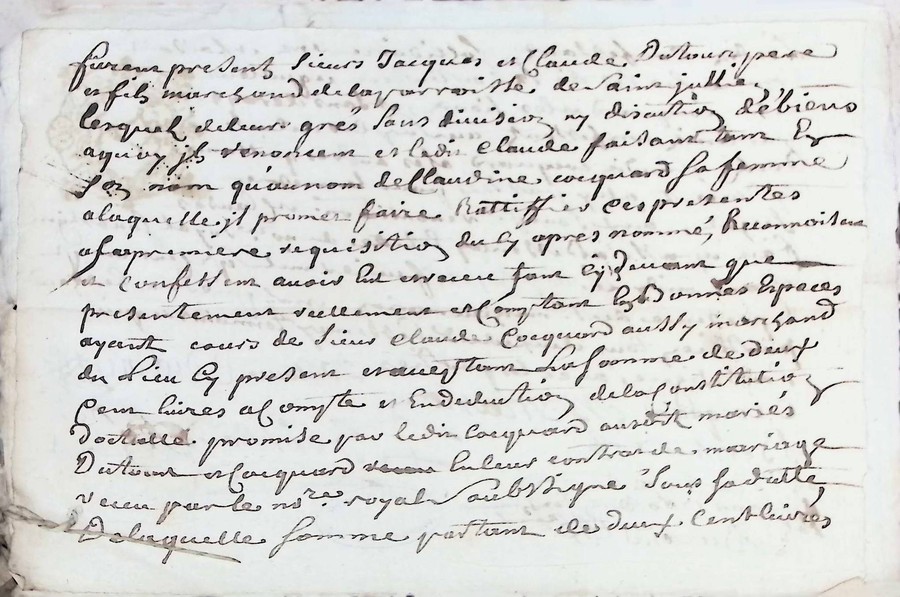 furent present sieurs Jacques et Claude Dutour pere
et fils marchand de la parroisse de Saint jullie
lesquels de leurs grés sans division ny discution débiens
aquoy jls renoncent et ledit Claude faisant tant En
son nom qu'au nom de Claudine cocquard sa femme
a laquelle jl promet faire Rattiffier ces presentes
a sa premiere requisition du Cy apres nommé, Reconnoissent
et confessent avoir Eut et receu tant Cy devant que
presentement reellement et Comptant En bonnes Espaces
ayant cours de sieur Claude Cocquard aussy marchand
du Lieu Cy present et acceptant La somme de deux
Cent livres a Compte et En deduction de la Constitution
dotalle promise par ledit Cocquard ausdit mariés
Dutour et Cocquard En leur contrat de mariage
receu par le nore royal Soubsigné Sous sa datte
De laquelle somme partant de deux Cent livres